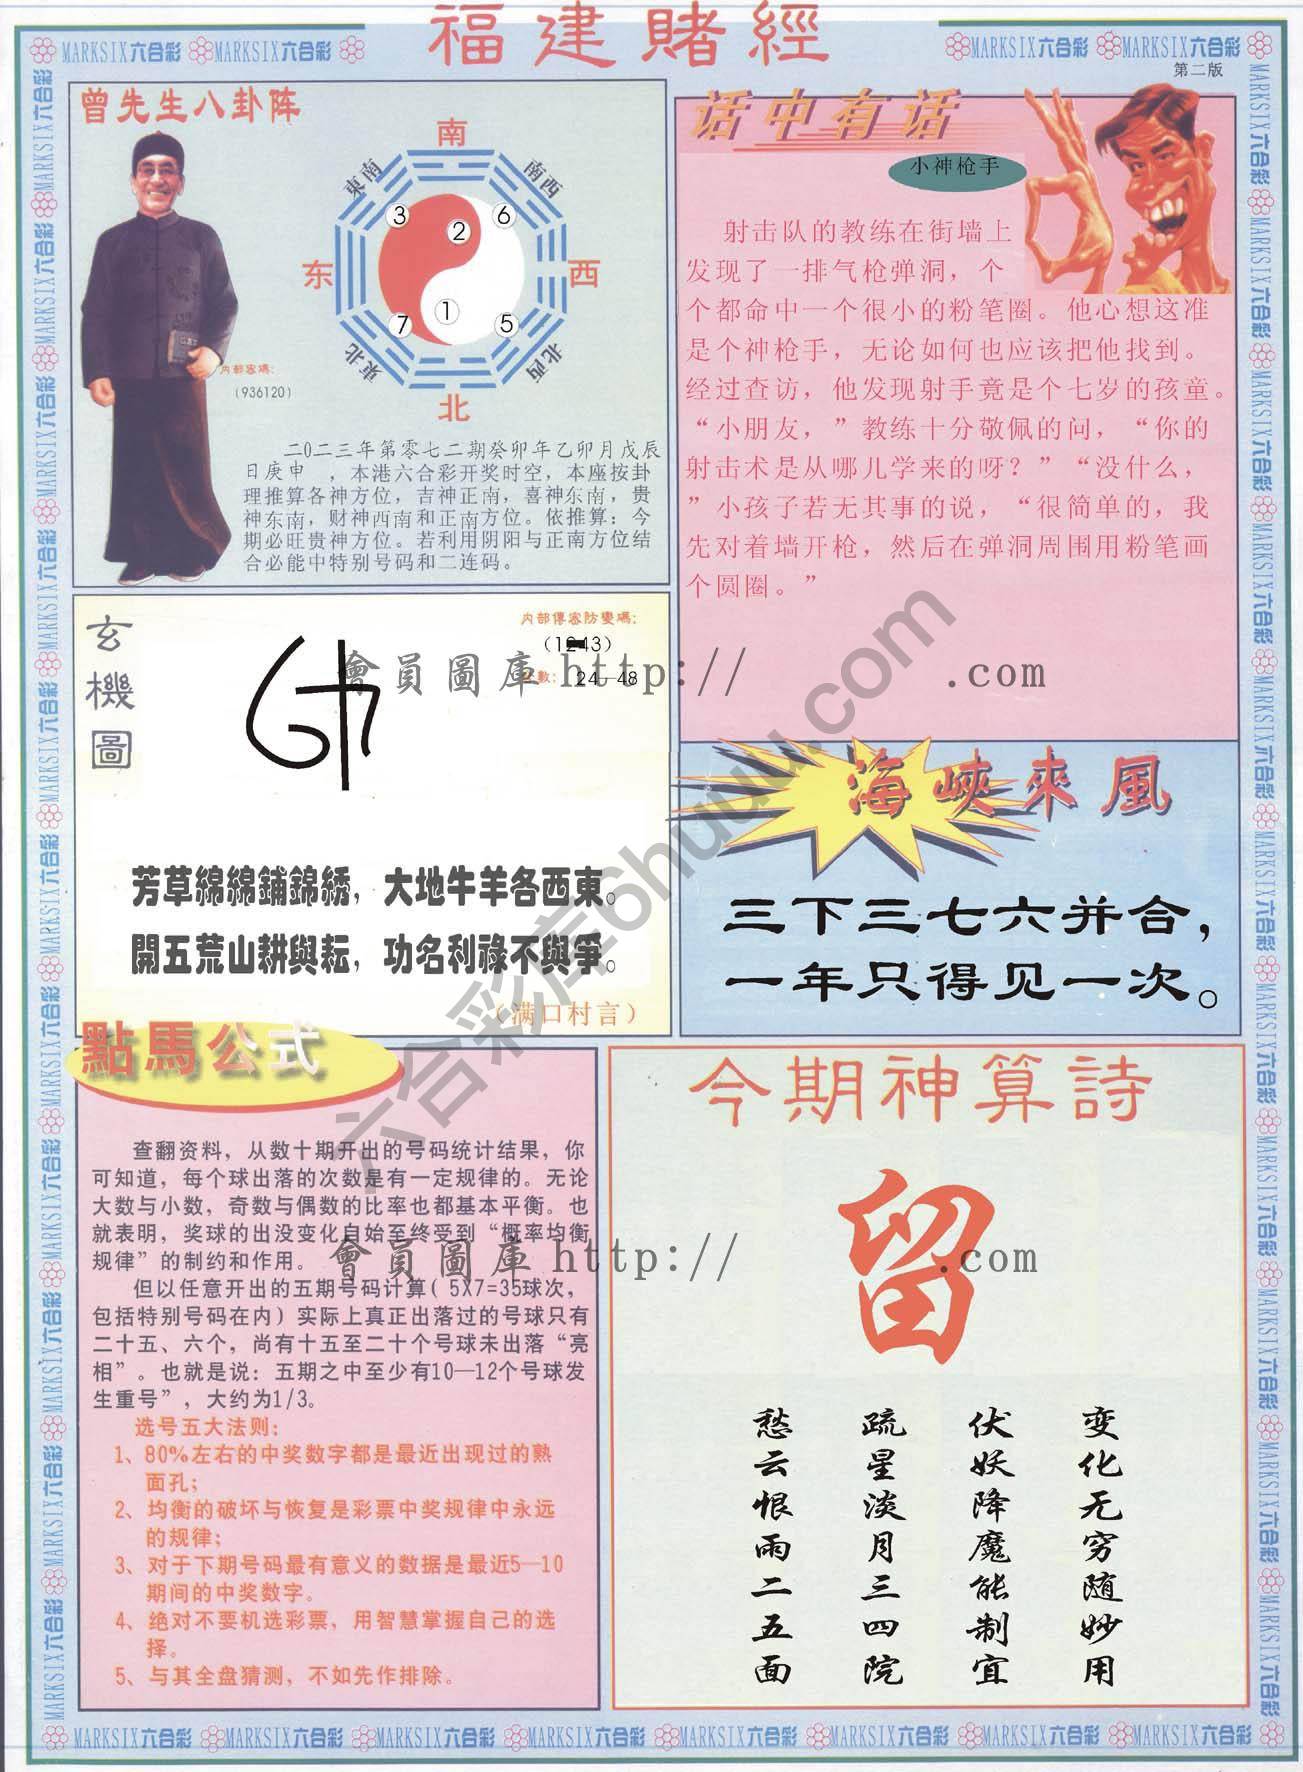 福建賭經
MARKSIX六合彩 MARKSIX六合彩
MARKSIX六合彩 MARKSIX六合彩
第二版
曾先生八卦阵
南
東南
南西
3
2
6
东
西
1
7
5
東北
北西
北
内部密碼:
(936120)
二0二三年第零七二期癸卯年乙卯月戊辰
日庚申 ,本港六合彩开奖时空,本座按卦
理推算各神方位,吉神正南,喜神东南,贵
神东南,财神西南和正南方位。依推算:今
期必旺贵神方位。若利用阴阳与正南方位结
合必能中特别号码和二连码。
话中有话
小神枪手
射击队的教练在街墙上
发现了一排气枪弹洞,个
个都命中一个很小的粉笔圈。他心想这准
是个神枪手,无论如何也应该把他找到。
经过查访,他发现射手竟是个七岁的孩童。
“小朋友,”教练十分敬佩的问,“你的
射击术是从哪儿学来的呀?”“没什么,
”小孩子若无其事的说,“很简单的,我
先对着墙开枪,然后在弹洞周围用粉笔画
个圆圈。”
玄機圖
内部傳密防變碼:
數: 24—48
會員圖庫 http:// .com
芳草綿綿鋪錦綉,大地牛羊各西東。
開五荒山耕與耘,功名利祿不與爭。
(满口村言)
海峽來風
三下三七六并合,
一年只得见一次。
六合彩库6huuu.com
點馬公式
查翻资料,从数十期开出的号码统计结果,你
可知道,每个球出落的次数是有一定规律的。无论
大数与小数,奇数与偶数的比率也都基本平衡。也
就表明,奖球的出没变化自始至终受到“概率均衡
规律”的制约和作用。
但以任意开出的五期号码计算(5X7=35球次,
包括特别号码在内)实际上真正出落过的号球只有
二十五、六个,尚有十五至二十个号球未出落“亮
相”。也就是说:五期之中至少有10—12个号球发
生重号”,大约为1/3。
选号五大法则:
1、80%左右的中奖数字都是最近出现过的熟
面孔;
2、均衡的破坏与恢复是彩票中奖规律中永远
的规律;
3、对于下期号码最有意义的数据是最近5—10
期间的中奖数字。
4、绝对不要机选彩票,用智慧掌握自己的选
择。
5、与其全盘猜测,不如先作排除。
會員圖庫 http:// .com
今期神算詩
留
变化无穷随妙用
伏妖降魔能制宜
疏星淡月三四院
愁云恨雨二五面
MARKSIX六合彩 MARKSIX六合彩 MARKSIX六合彩 MARKSIX六合彩 MARKSIX六合彩 MARKSIX六合彩 MARKSIX六合彩 MARKSIX六合彩